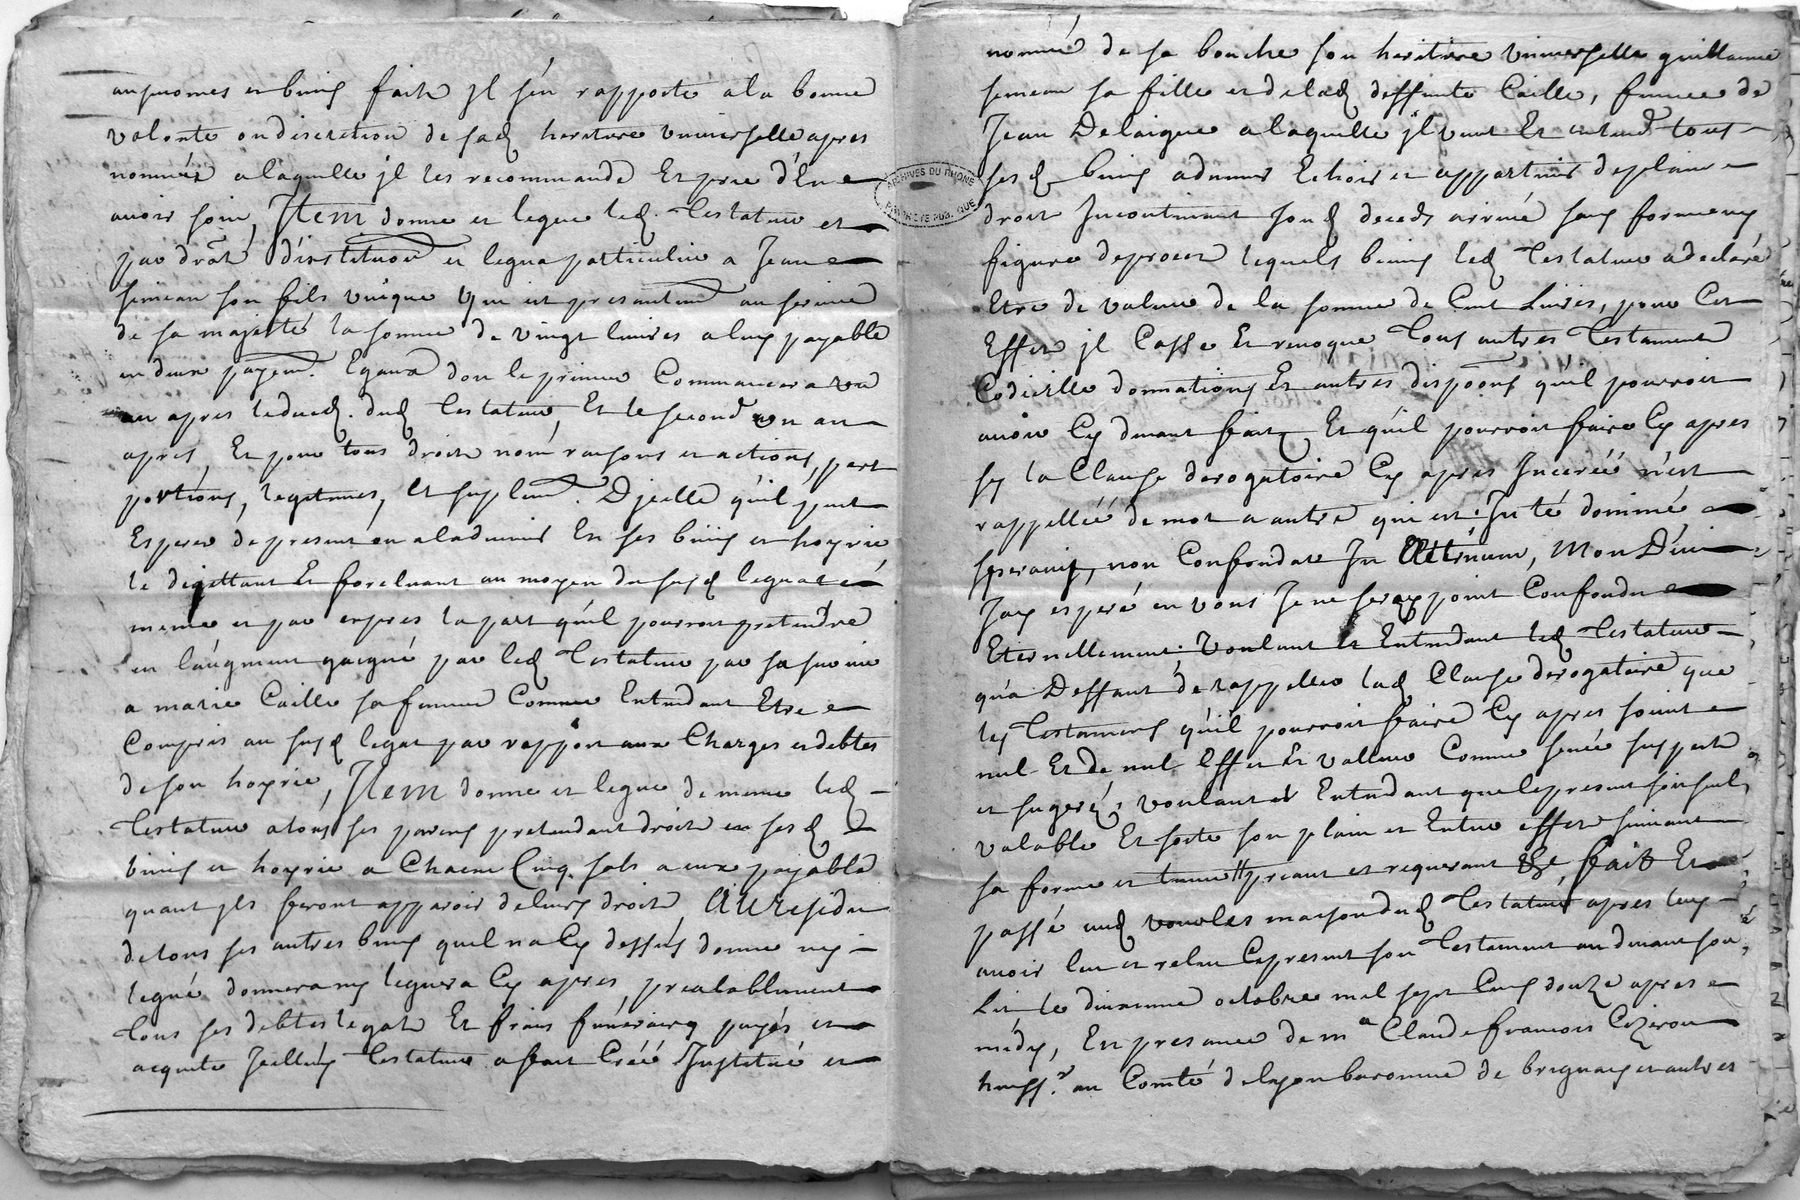 aumones et biens faits il s'en rapporte a la bonne
volonte ou discretion de sad heritiere universelle apres
nommée a laquelle jl les recommande Et prie d'En
avoir soin, Item donne et legue led. Testateur et
par droit d'institution et legat particulier a Jean
simean son fils unique qui est presentem au service
de sa majesté la somme de vingt livres a luy payable
en deux payem. Egaux dont le premier Commancera un
an apres le deced. dud Testateur, Et le second un an
apres, Et pour tous droits nom raisons et actions, part
portions, legitimes, et suplem. D'jcelle qu'il peut
Esperer de present ou a ladvenir En ses biens et hoyrie
le dejettant Et forcluant au moyen du susd legat et
meme et par expres la part qu'il pourroit pretendre
en l'augment gaigné par led Testateur par sa survie
a marie Caille sa femme Comme Entendant Etre
Compris au susd legat par rapport aux Charges et debtes
de son hoyrie, Item donne et legue de meme led
Testateur a tous ses parens pretendant droit en sesd
biens et hoyrie a Chacun Cinq sols a eux payable
quant jls feront apparoir de leurs droits, Au Residu
de tous ses autres biens quil na Cy dessus donné ny
legué donnera ny leguera Cy apres prealablement
tous ses debtes legats Et frais funeraires payés et
acquités Jcelluy Testateur a fait Créé Jnstitué et
ARCHIVES DU RHONE
nommé de sa bouche son heritiere universelle guillaume
simean sa fille et de lad deffunte Caille, femme de
Jean Delaigue a laquelle jl veut Et entend tous
sesd biens advenir Echoir et appartenir de plain
droit Jncontinant sond deceds arrivé sans forme ny
figure de proces lequels biens led Testateur a declaré
Etre de valeur de la somme de Cent Livres, pour Cet
Effet jl Casse Et revoque Tous autres Testament
Codicille donnations Et autres dispoons quil pourroit
avoir Cy devant fait Et qu'il pourroit faire Cy apres
sy la Clause derogatoire Cy apres Jnserée n'est
rappellée de mot a autre qui est: In te dominé
speravi, non Confondar Jn Æternum, Mon Dieu
Jay esperé en vous Je ne seray point Confondu
Eternellement: Voulant Et Entendant led Testateur
qu'a Deffaut de rappeller lad Clause derogatoire que
les Testamens qu'il pourroit faire Cy apres soient
nul Et de nul Effet Et valleur Comme
et sugeré, voulant et Entendant que le present soit seul
valable Et sorte son plain et Entier effet suivant
sa forme et teneur priant et requerant fait Et
passé aud maison dud Testateur apres luy
avoir leu et releu Ce present son Testament au devant son
Lit le dixieme octobre mil sept Cens douze apres
midy, En presance de m Claude francois Cizeron
huiss. au Comté de lyon baronnie de brignais et autres